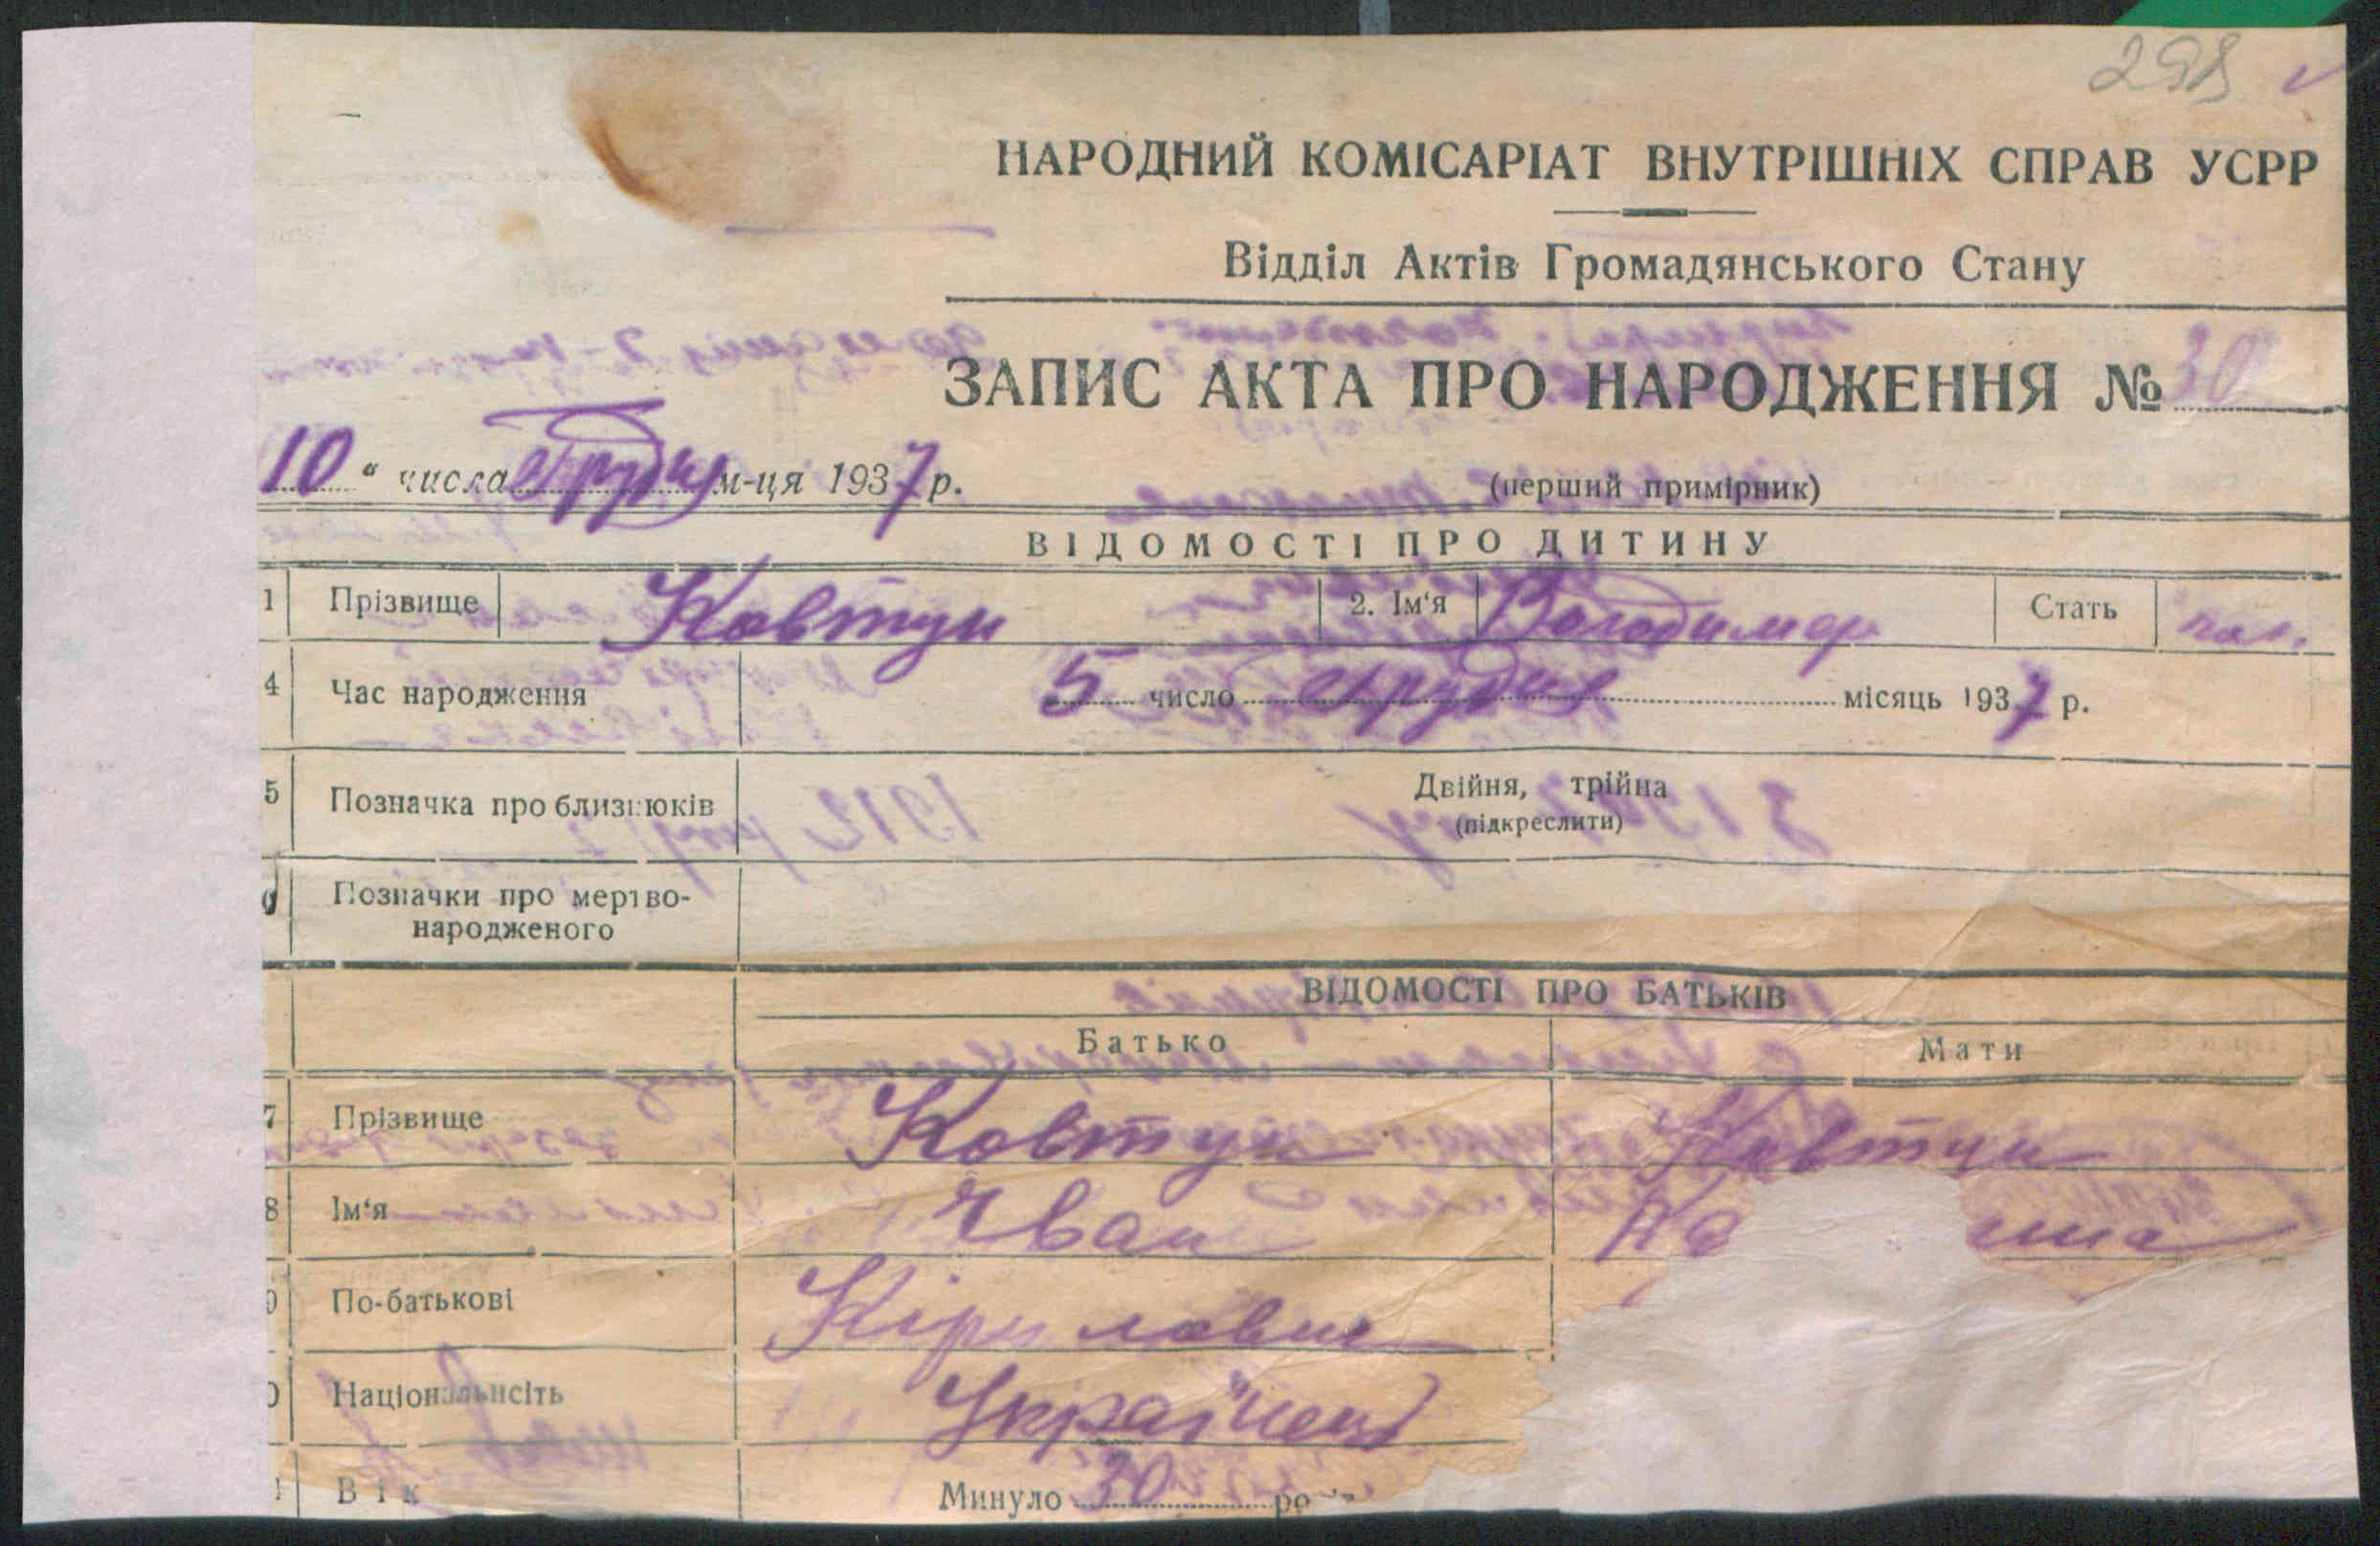 298 ✓
НАРОДНИЙ КОМІСАРІАТ ВНУТРІШНІХ СПРАВ УСРР
Відділ Актів Громадянського Стану
ЗАПИС АКТА ПРО НАРОДЖЕННЯ № 30
10 " числа грудня м-ця 1937 р.
(перший примірник)
ВІДОМОСТІ ПРО ДИТИНУ
1 Прізвище Ковтун 2. Ім'я Володимир Стать чол.
4 Час народження 5 число грудня місяць 1937 р.
5 Позначка про близнюків Двійня, трійна
(підкреслити)
Позначки про мертво-
народженого
ВІДОМОСТІ ПРО БАТЬКІВ
Батько Мати
7 Прізвище Ковтун Ковтун
8 Ім'я Іван
По-батькові Кірилович
Національнсіть Українець
Вік Минуло 30